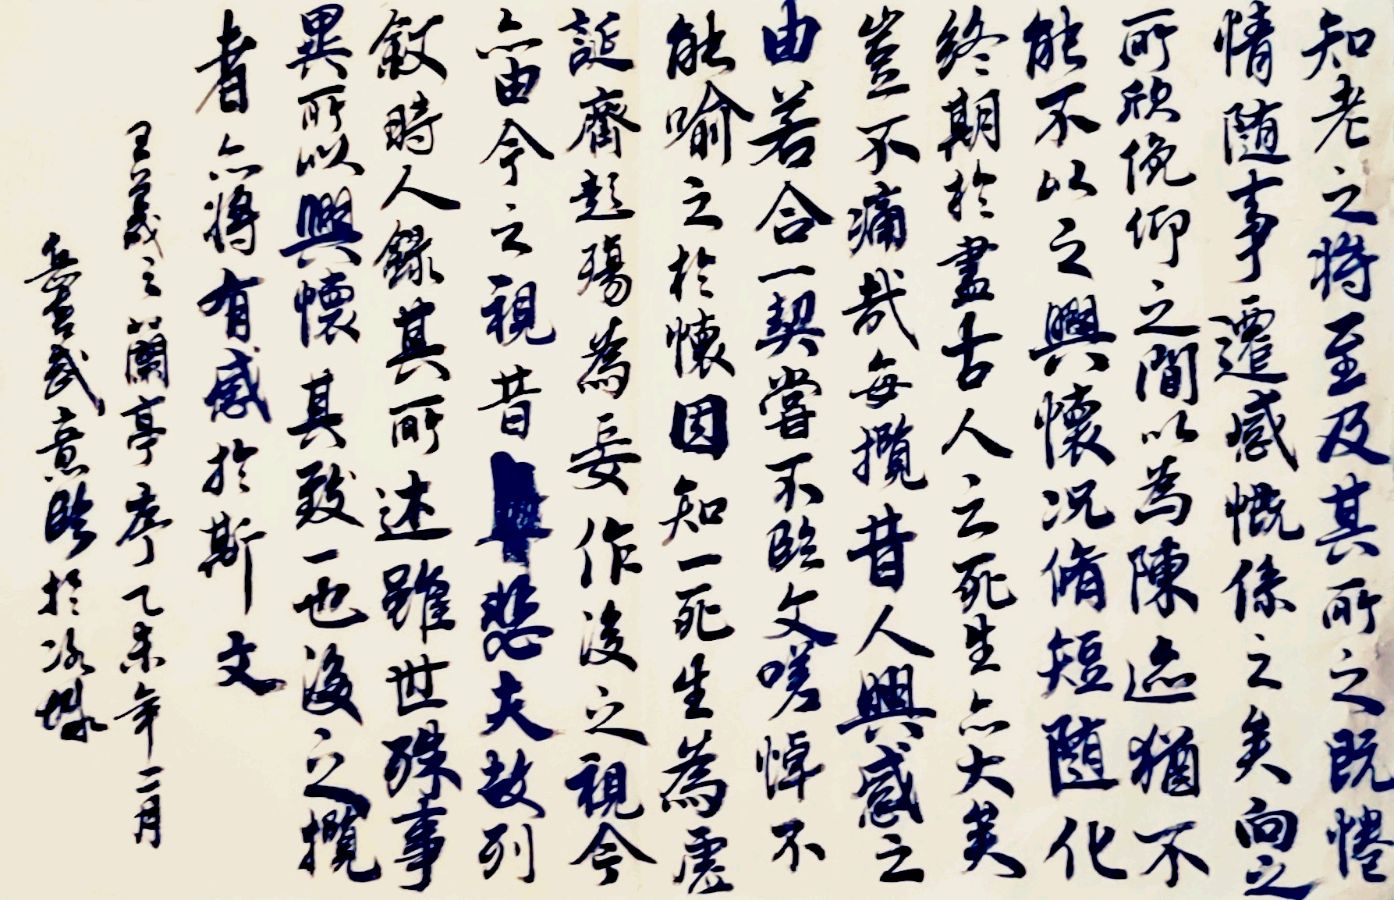 知老之将至及其所之既惓
情随事遷感慨係之矣向之
所欣俛仰之間以為陳迹猶不
能不以之興懷况脩短随化
終期於盡古人云死生亦大矣
豈不痛哉每攬昔人興感之
由若合一契嘗不臨文嗟悼不
能喻之於懷因知一死生為虛
誕齊彭殤為妄作後之視今
亦由今之視昔悲夫故列
敘時人錄其所述雖世殊事
異所以興懷其致一也後之攬
者亦將有感於斯文
王羲之蘭亭序乙未年二月
武意臨於